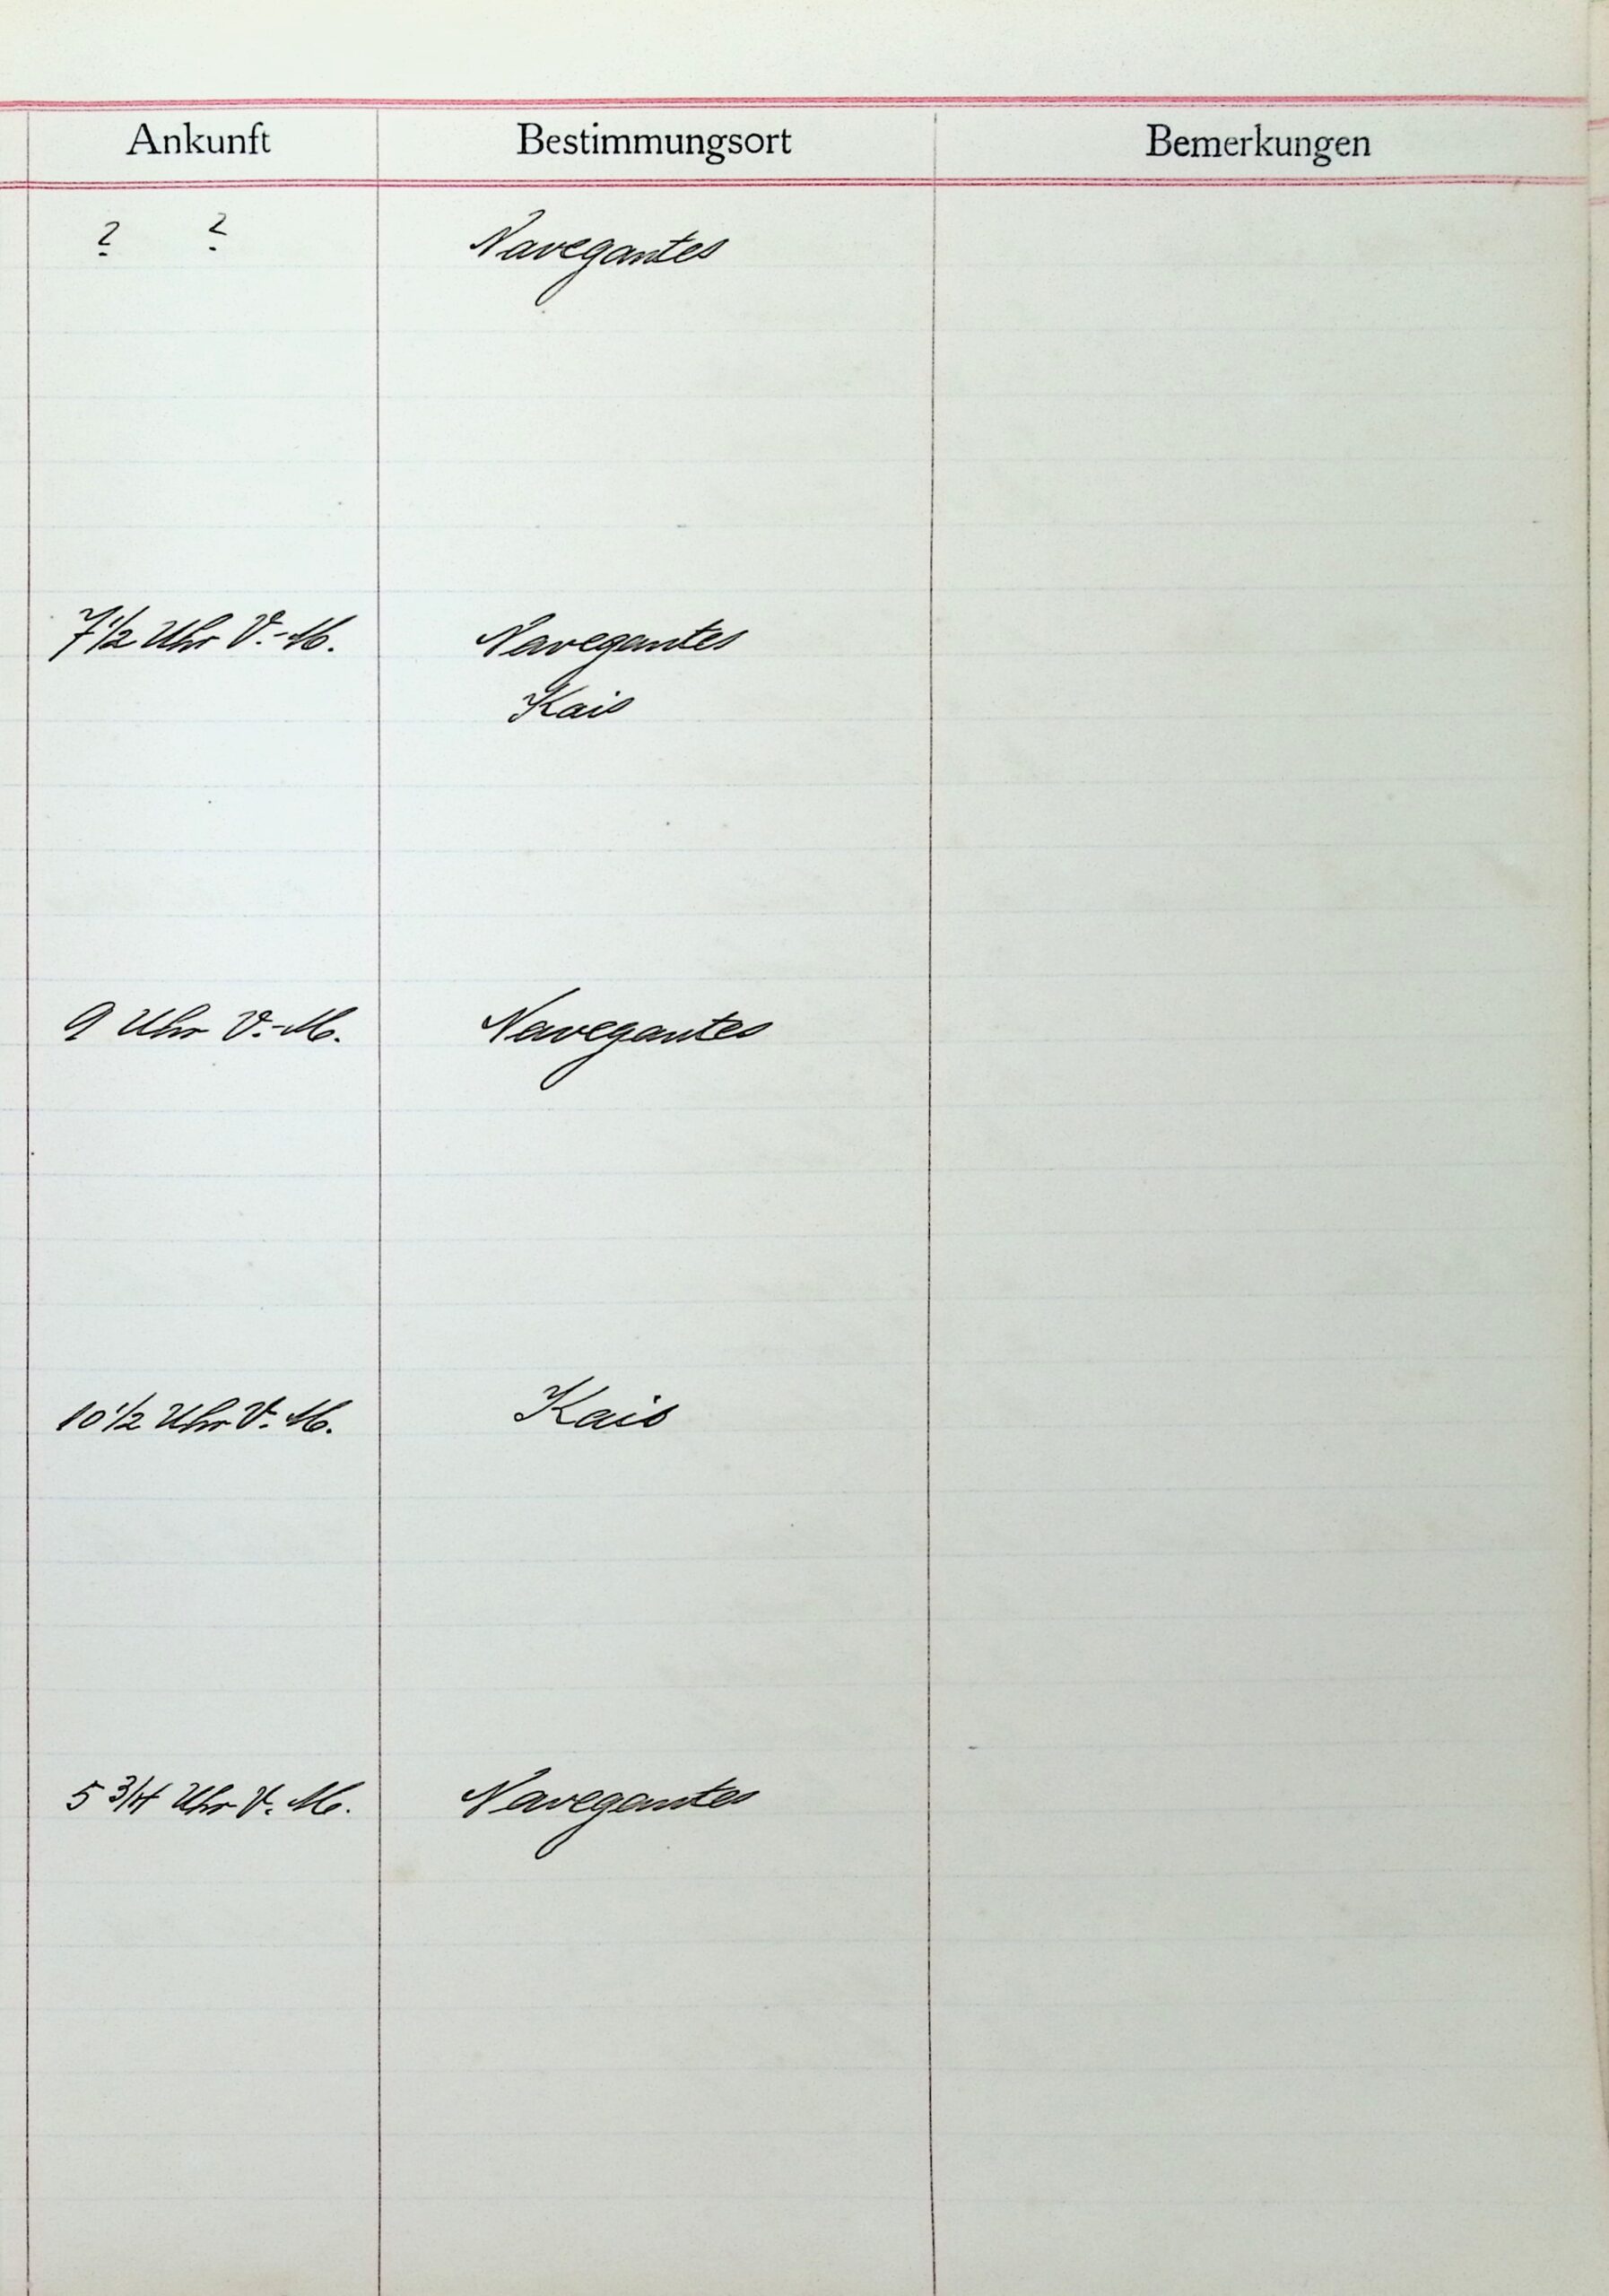 Ankunft Bestimmungsort Bemerkungen
? ? Navegantes
7 1/2 Uhr V.-M. Navegantes
Kais
9 Uhr V.-M. Navegantes
10 1/2 Uhr V. M. Kais
5 3/4 Uhr V. M. Navegantes